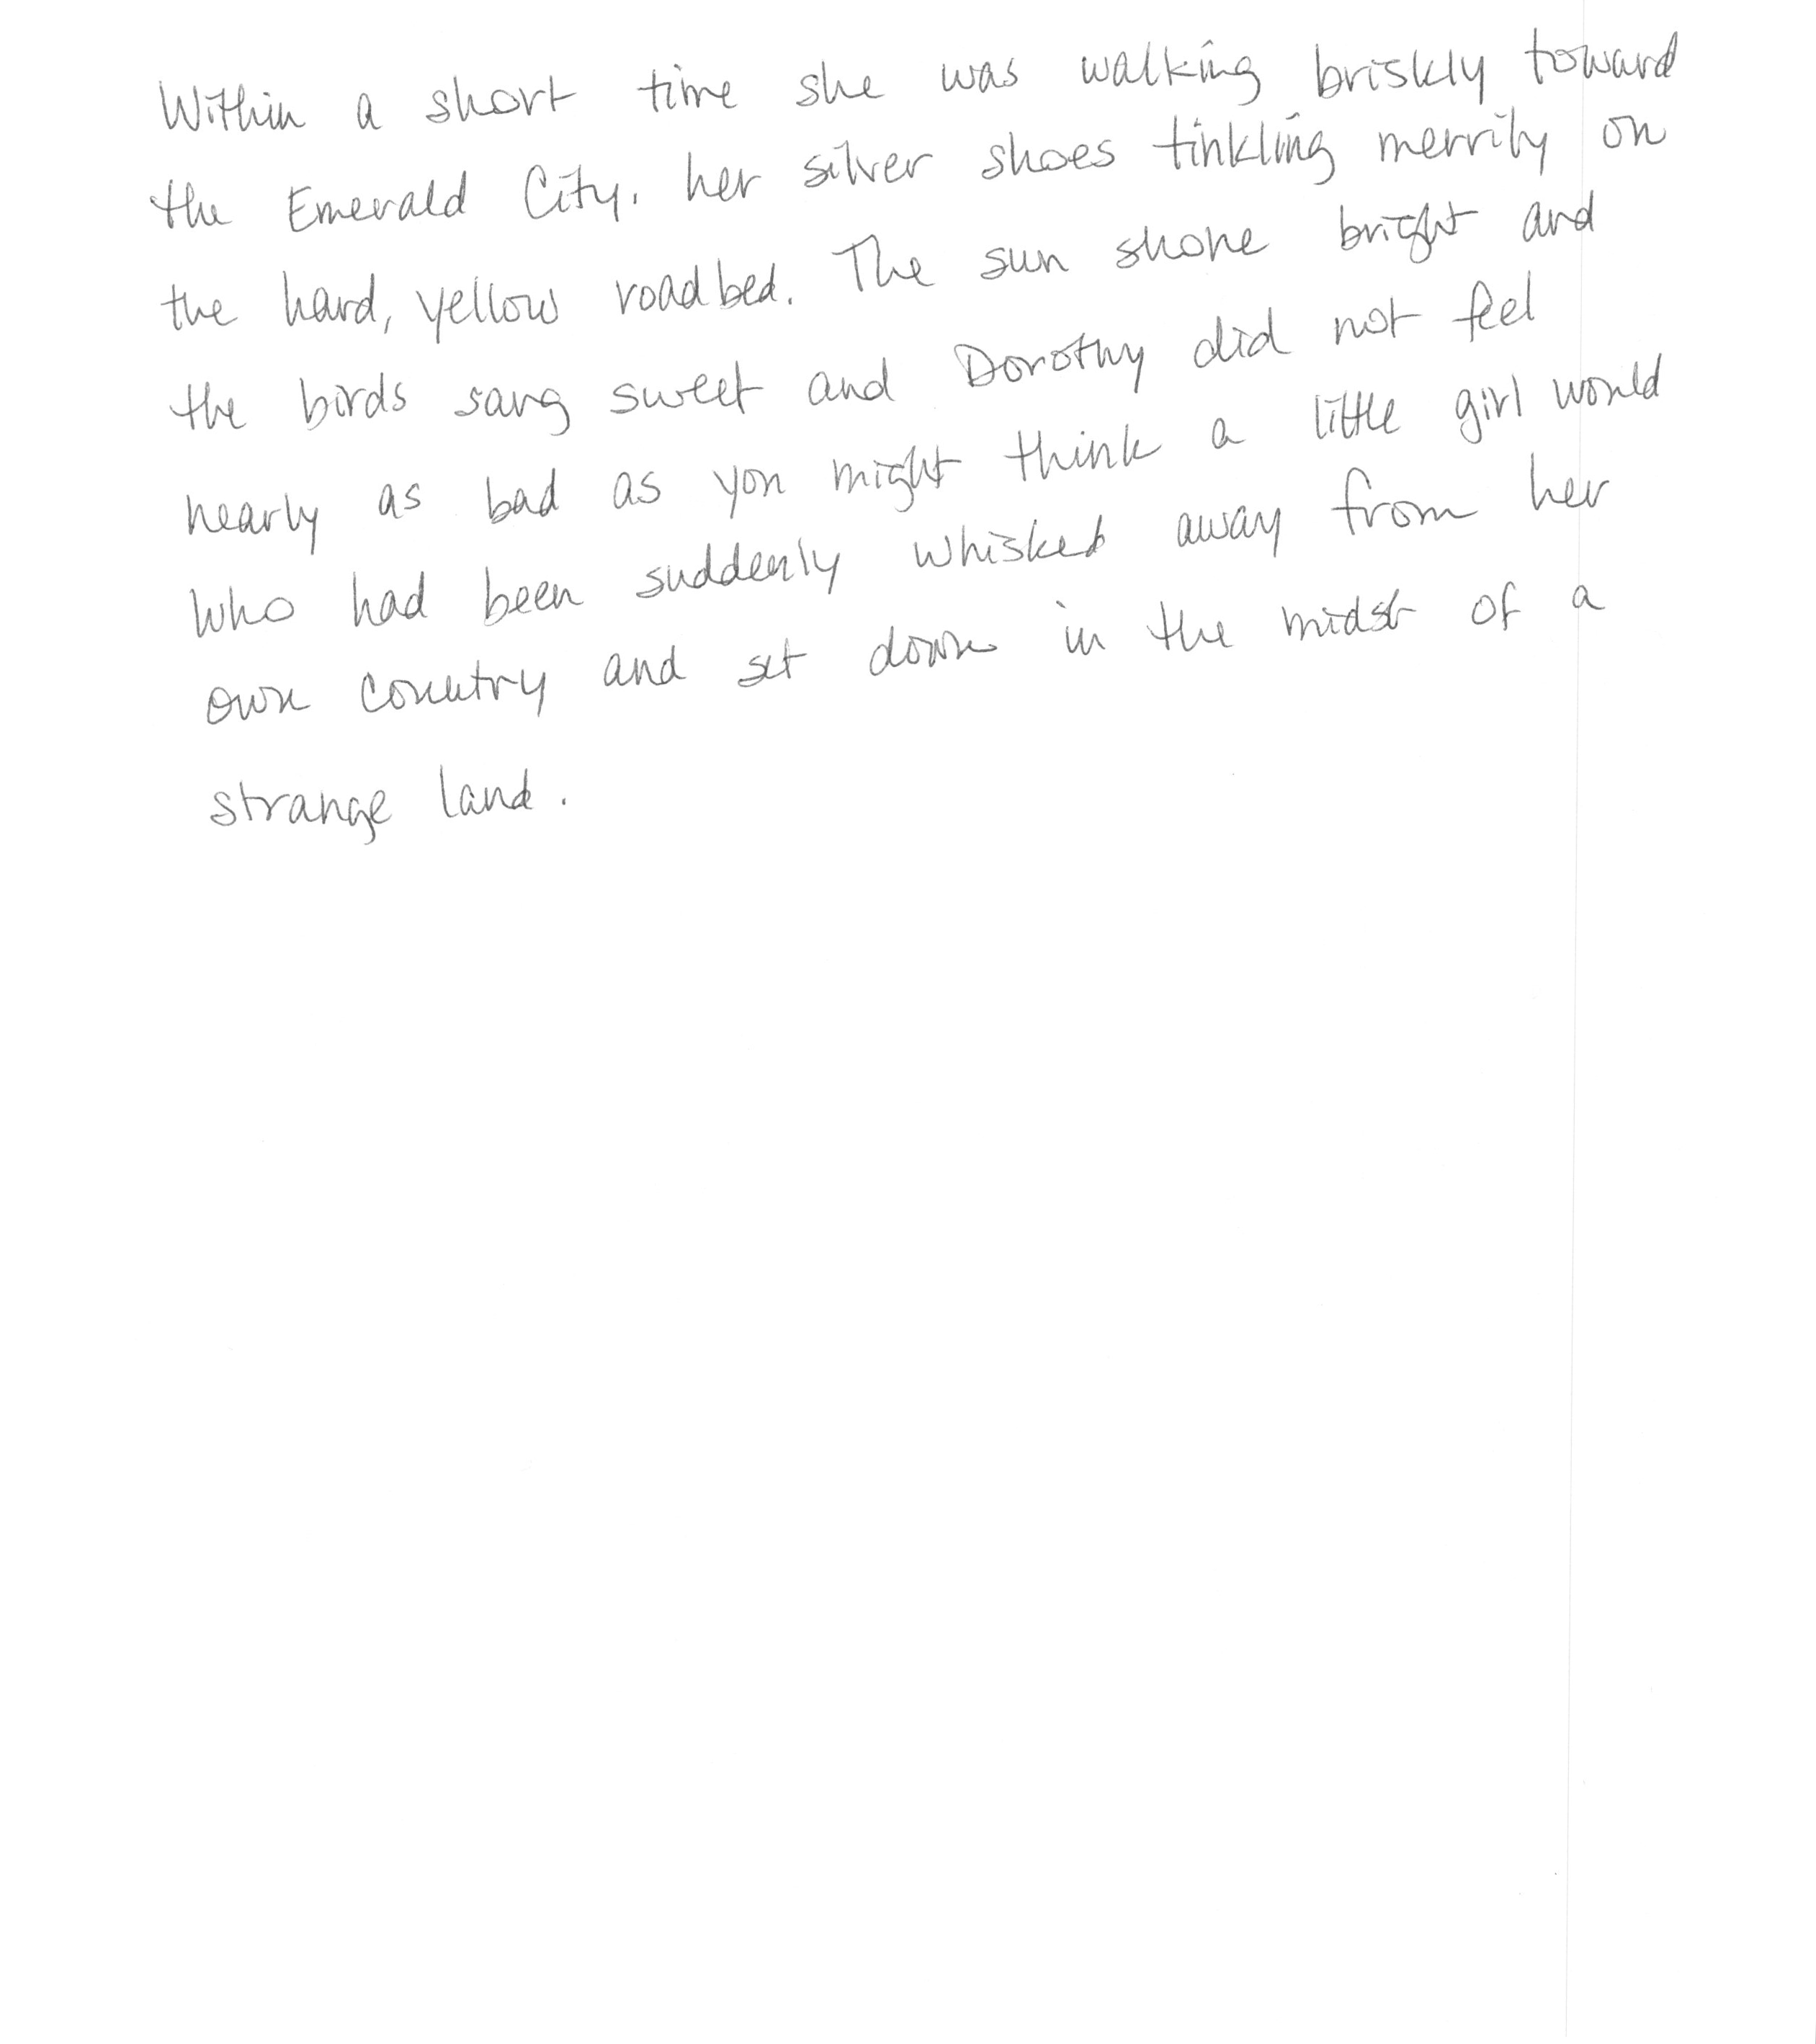 Within a short time she was walking briskly toward
the Emerald City. her silver shoes tinkling merrily on
the hard, yellow roadbed. The sun shone bright and
the birds sang sweet and Dorothy did not feel
nearly as bad as you might think a little girl would
who had been suddenly whisked away from her
own country and set down in the midst of a
strange land.